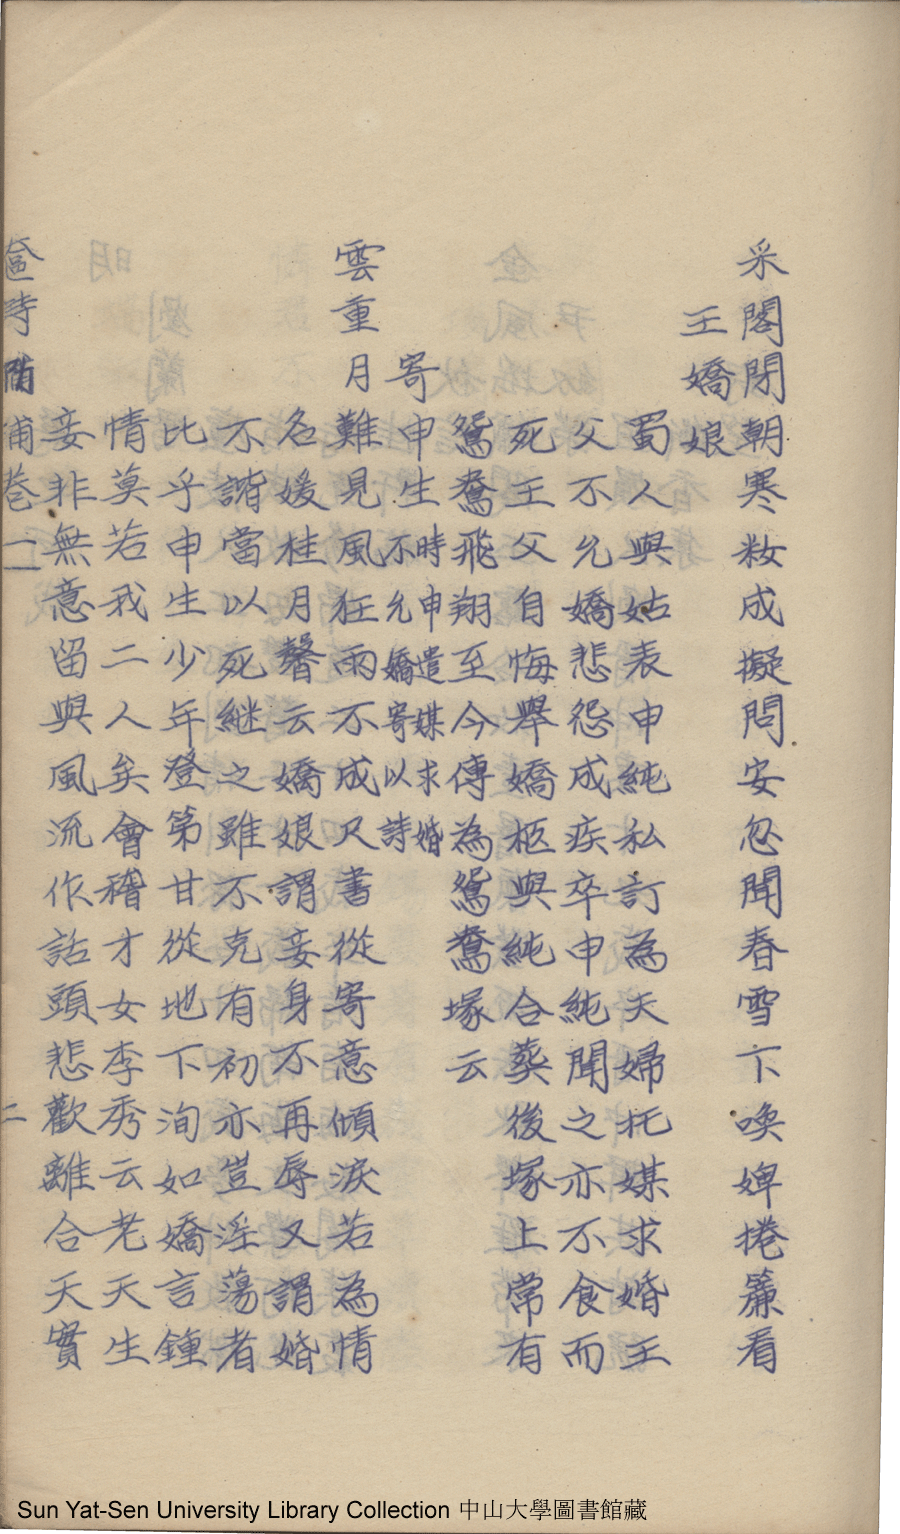 采閣閉朝寒妝成擬問安忽聞春雪下喚婢捲簾看
王嬌娘
蜀人與姑表申純私訂為夫婦托媒求婚王
父不允嬌悲怨成疾卒申純聞之亦不食而
死王父自悔舉嬌柩與純合葬後塚上常有
鴛鴦飛翔至今傳為鴛鴦塚云
寄申生時申遣媒求婚不允嬌寄以詩
雲重月難見風狂雨不成尺書從寄意傾淚若為情
名媛桂月馨云嬌娘謂妾身不再辱又謂婚
不諧當以死継之雖不克有初亦豈淫蕩者
比乎申生少年登第甘從地下洵如嬌言鍾
情莫若我二人矣會稽才女李秀云老天生
妾非無意留與風流作話頭悲歡離合天實
卷一 二
Sun Yat-Sen University Library Collection 中山大學圖書館藏